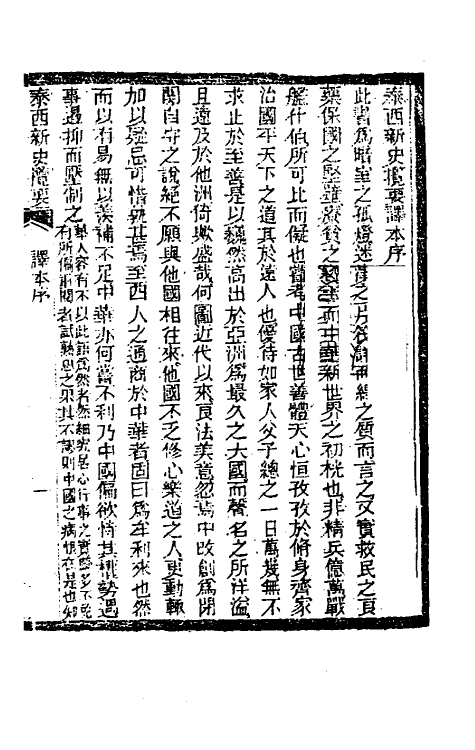 泰西新史攬要譯本序
此書爲暗室之孤燈迷津之片筏詳而繹之質而言之又實救民之良
藥保國之堅壘療貧之寶玉而中華新世界之初桄也非精兵億萬戰
艦什伯所可比而儗也嘗考中國古世善體天心恒孜孜於脩身齊家
治國平天下之道其於遠人也優待如家人父子總之一日萬幾無不
求止於至善是以巍然高出於亞洲爲最久之大國而聲名之所洋溢
且遠及於他洲猗歟盛哉何圖近代以來良法美意忽焉中改創爲閉
關自守之說絕不願與他國相往來他國不乏修心樂道之人更動輒
加以疑忌可惜孰甚焉至西人之通商於中華者固曰爲牟利來也然
而以有易無以羨補不足中華亦何嘗不利乃中國偏欲恃其權勢遇
事遏抑而壓制之
華人容有不以此論爲然者然細究居心行事之實際多不能
有所偏諱閱者試熟思之果其不謬則中國之病根在是也知
泰西新史攬要
譯本序
一